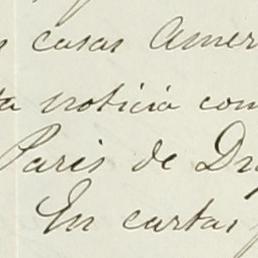 casas Amer
noticia com
Paris de
En cartas